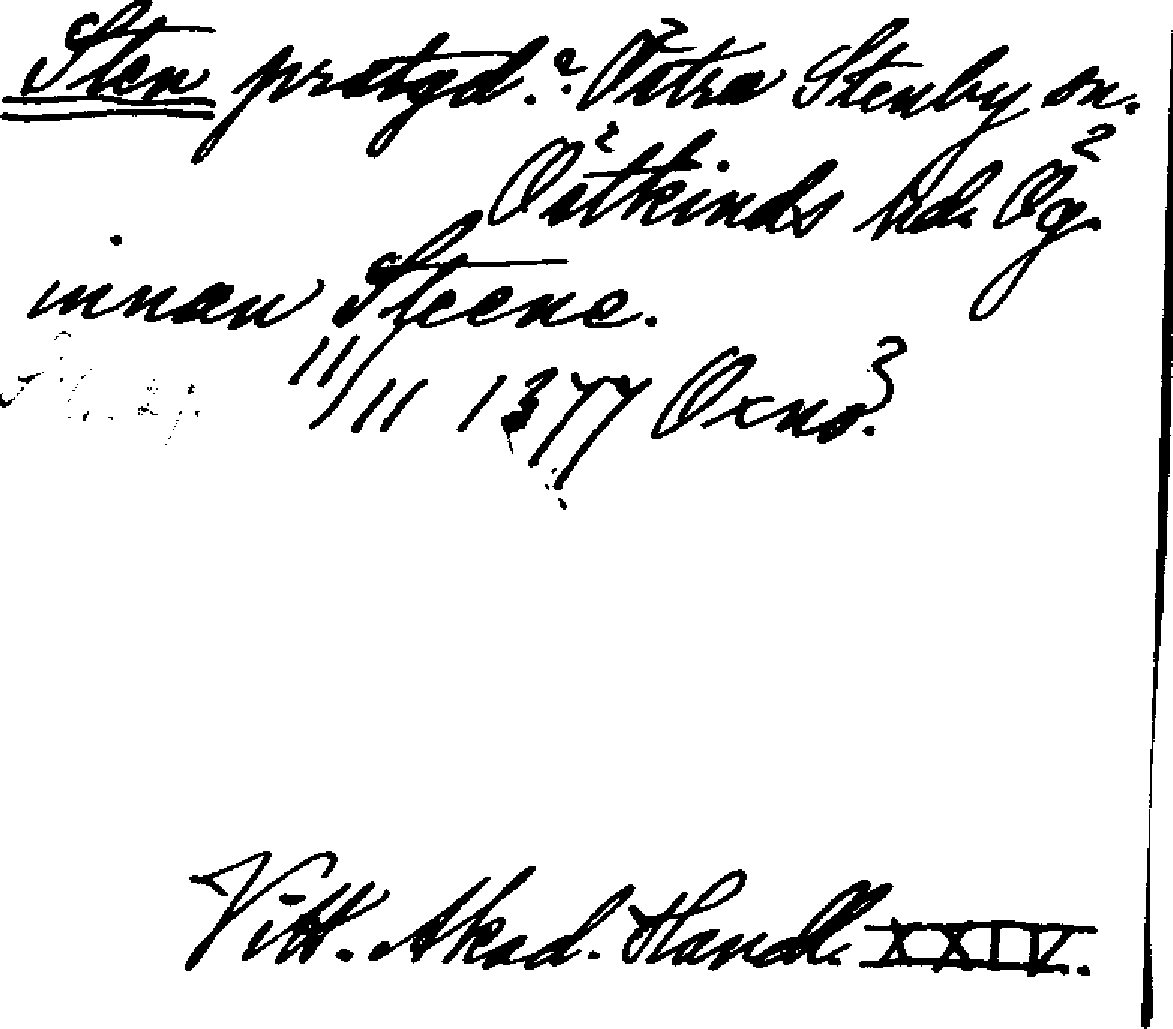 Sten prästgd. Östra Stenby sn.
Östkinds hd. Ög.
innan Steene.
11/11 1377 Oxnö.
Vitt. Akad. Handl. XXIV.